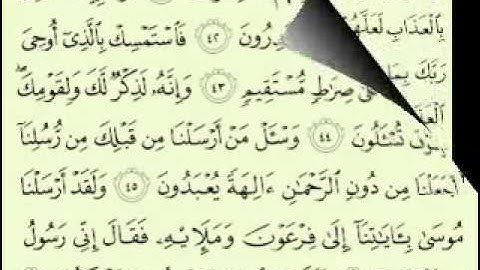 بِٱلۡعَذَابِ لَعَلَّهُمۡ
دِرُونَ ٤٢ فَٱسۡتَمۡسِكۡ بِٱلَّذِيٓ أُوحِيَ
رَبِّكَ بِمَا صِرَٰطٖ مُّسۡتَقِيمٖ ٤٣ وَإِنَّهُۥ لَذِكۡرٞ لَّكَ وَلِقَوۡمِكَۖ
تُسۡـَٔلُونَ ٤٤ وَسۡـَٔلۡ مَنۡ أَرۡسَلۡنَا مِن قَبۡلِكَ مِن رُّسُلِنَآ
أَجَعَلۡنَا مِن دُونِ ٱلرَّحۡمَٰنِ ءَالِهَةٗ يُعۡبَدُونَ ٤٥ وَلَقَدۡ أَرۡسَلۡنَا
مُوسَىٰ بِـَٔايَٰتِنَآ إِلَىٰ فِرۡعَوۡنَ وَمَلَإِيْهِۦ فَقَالَ إِنِّي رَسُولُ